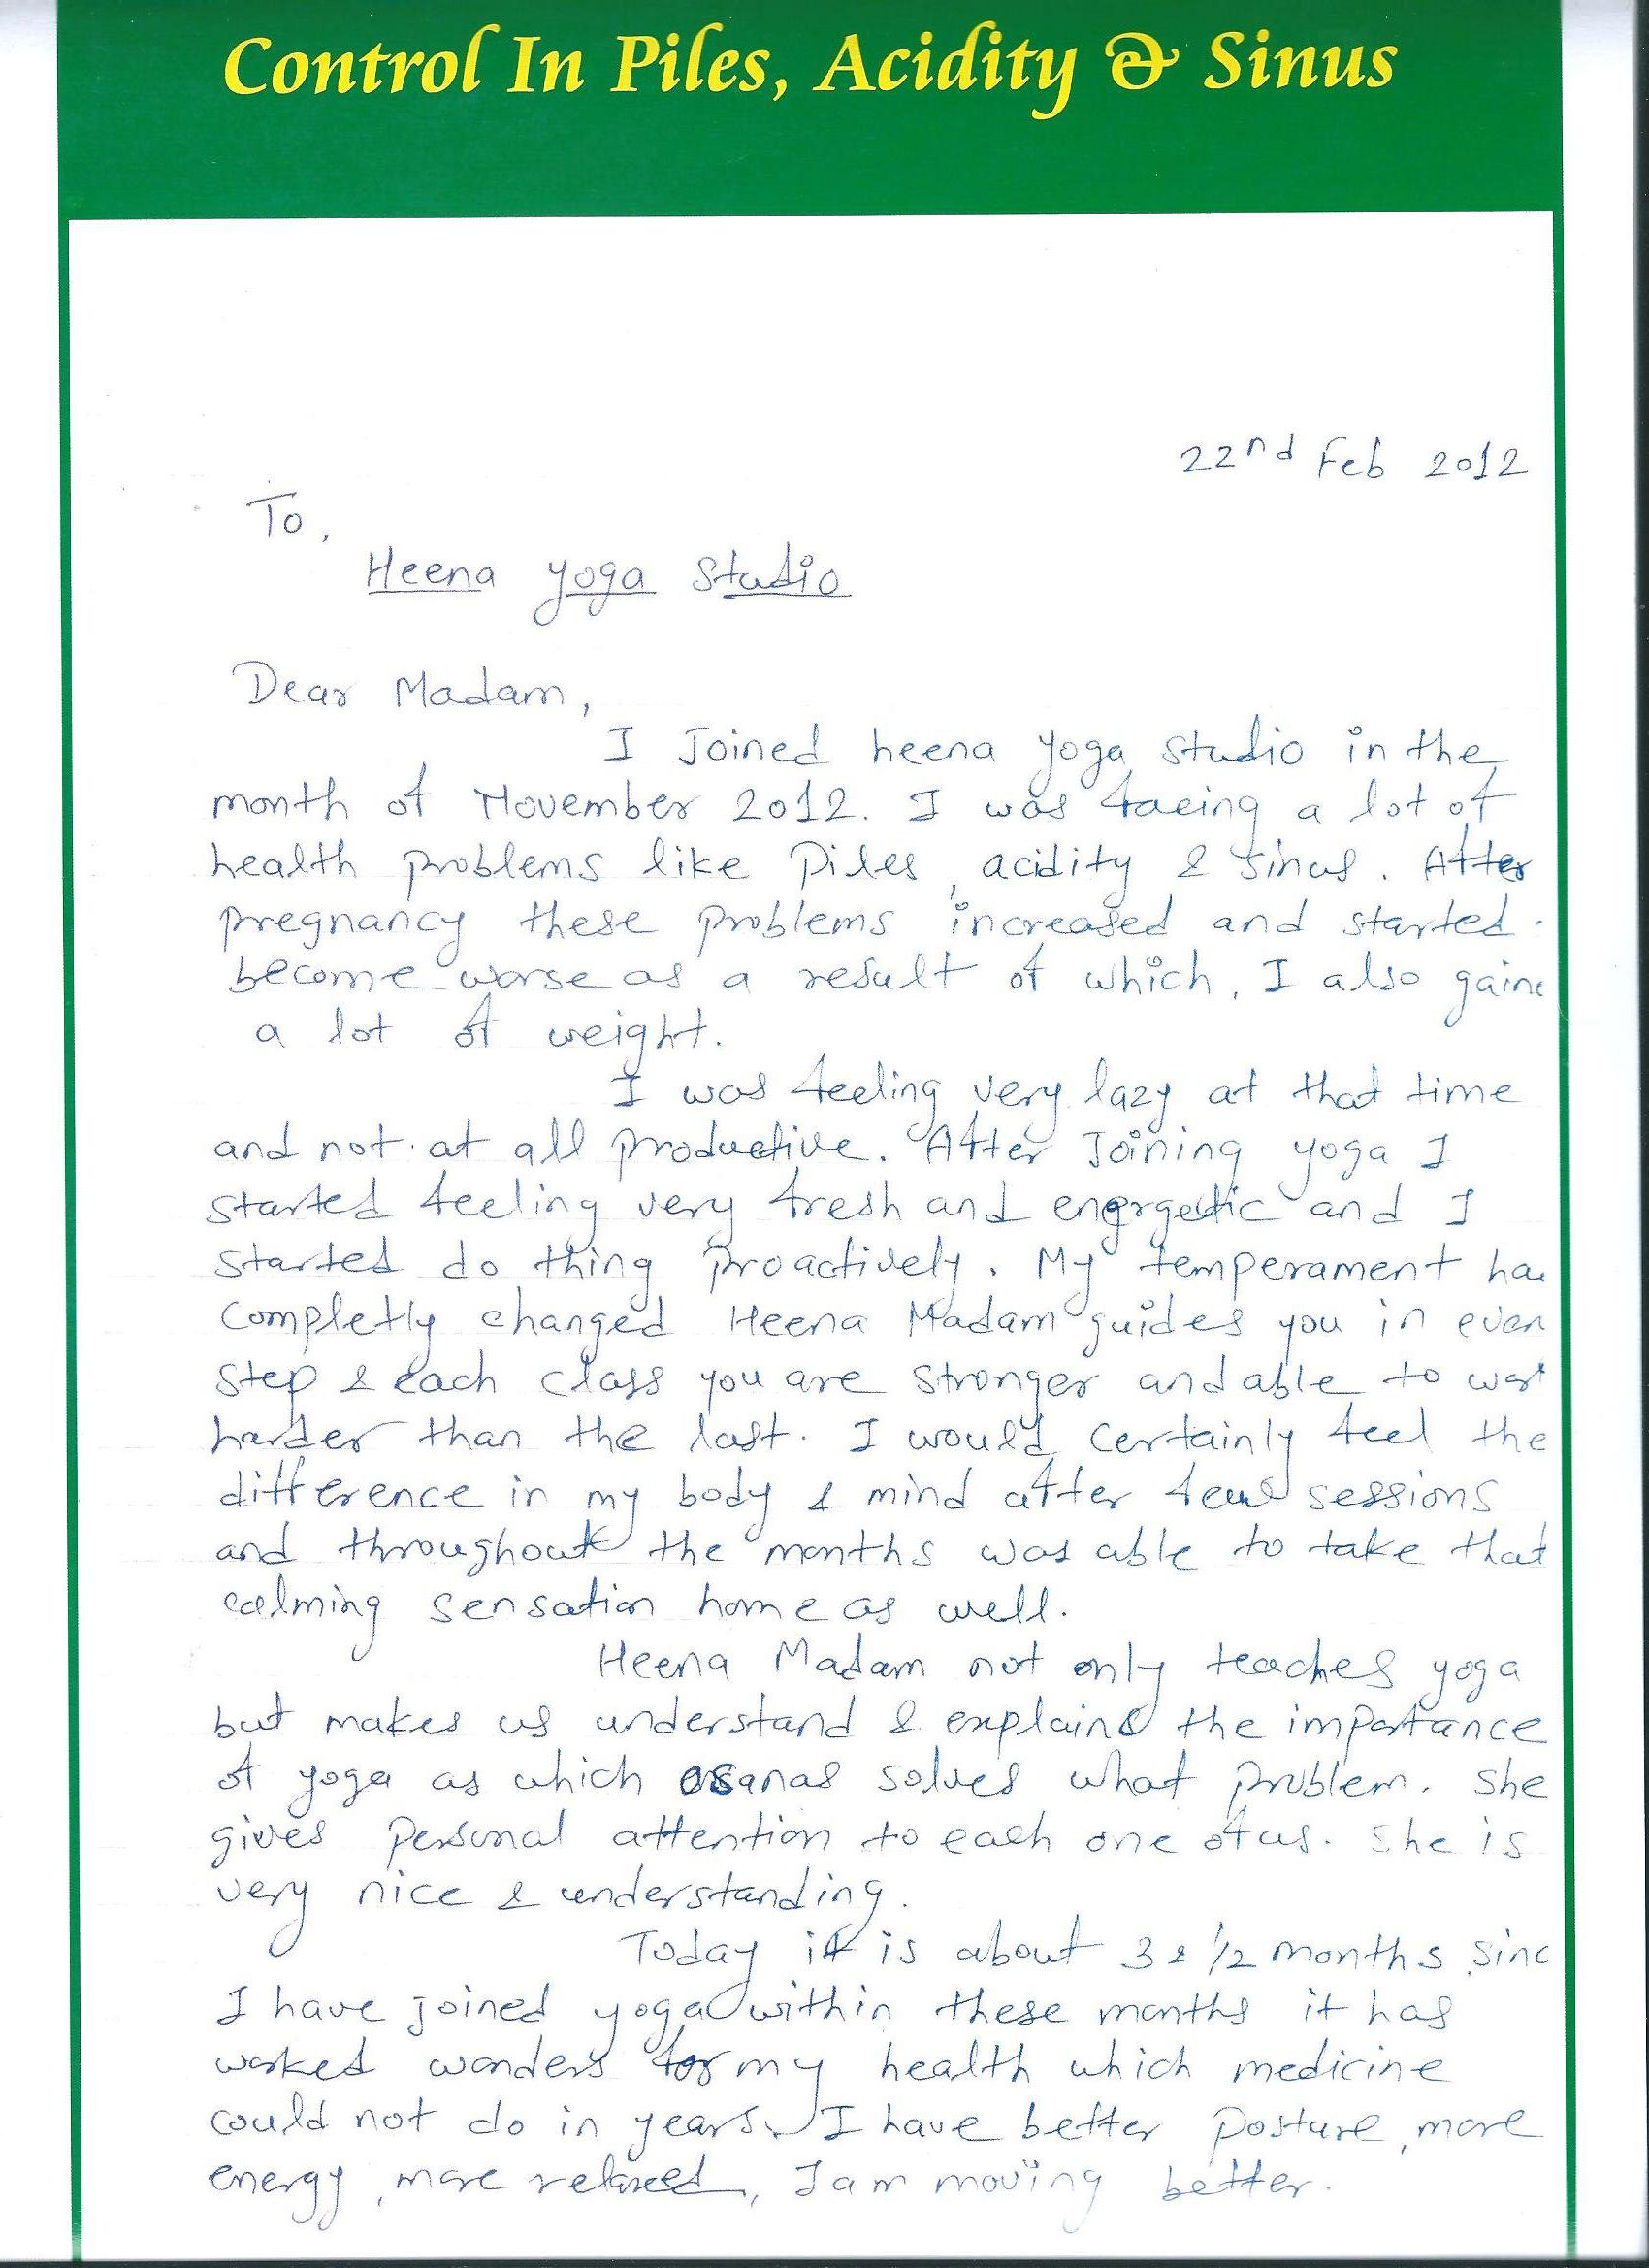 Control In Piles, Acidity & Sinus
22nd Feb 2012
To,
Heena Yoga Studio
Dear Madam,
I Joined heena yoga studio in the
month of November 2012. I was facing a lot of
health problems like Piles, acidity & sinus. After
pregnancy these problems increased and started
become worse as a result of which, I also gaine
a lot of weight.
I was feeling very lazy at that time
and not at all productive. After Joining yoga I
started feeling very fresh and energetic and I
started do thing proactively. My temperament ha
completly changed Heena Madam guides you in ever
step & each class you are stronger and able to wor
harder than the last. I would certainly feel the
difference in my body & mind after few sessions
and throughout the months was able to take that
calming sensation home as well.
Heena Madam not only teaches yoga
but makes us understand & explains the importance
of yoga as which asanas solves what problem. She
gives personal attention to each one of us. She is
very nice & understanding.
Today it is about 3 & 1/2 months sinc
I have joined yoga within these months it has
worked wonders for my health which medicine
could not do in years. I have better posture, more
energy, more relaxed, I am moving better.